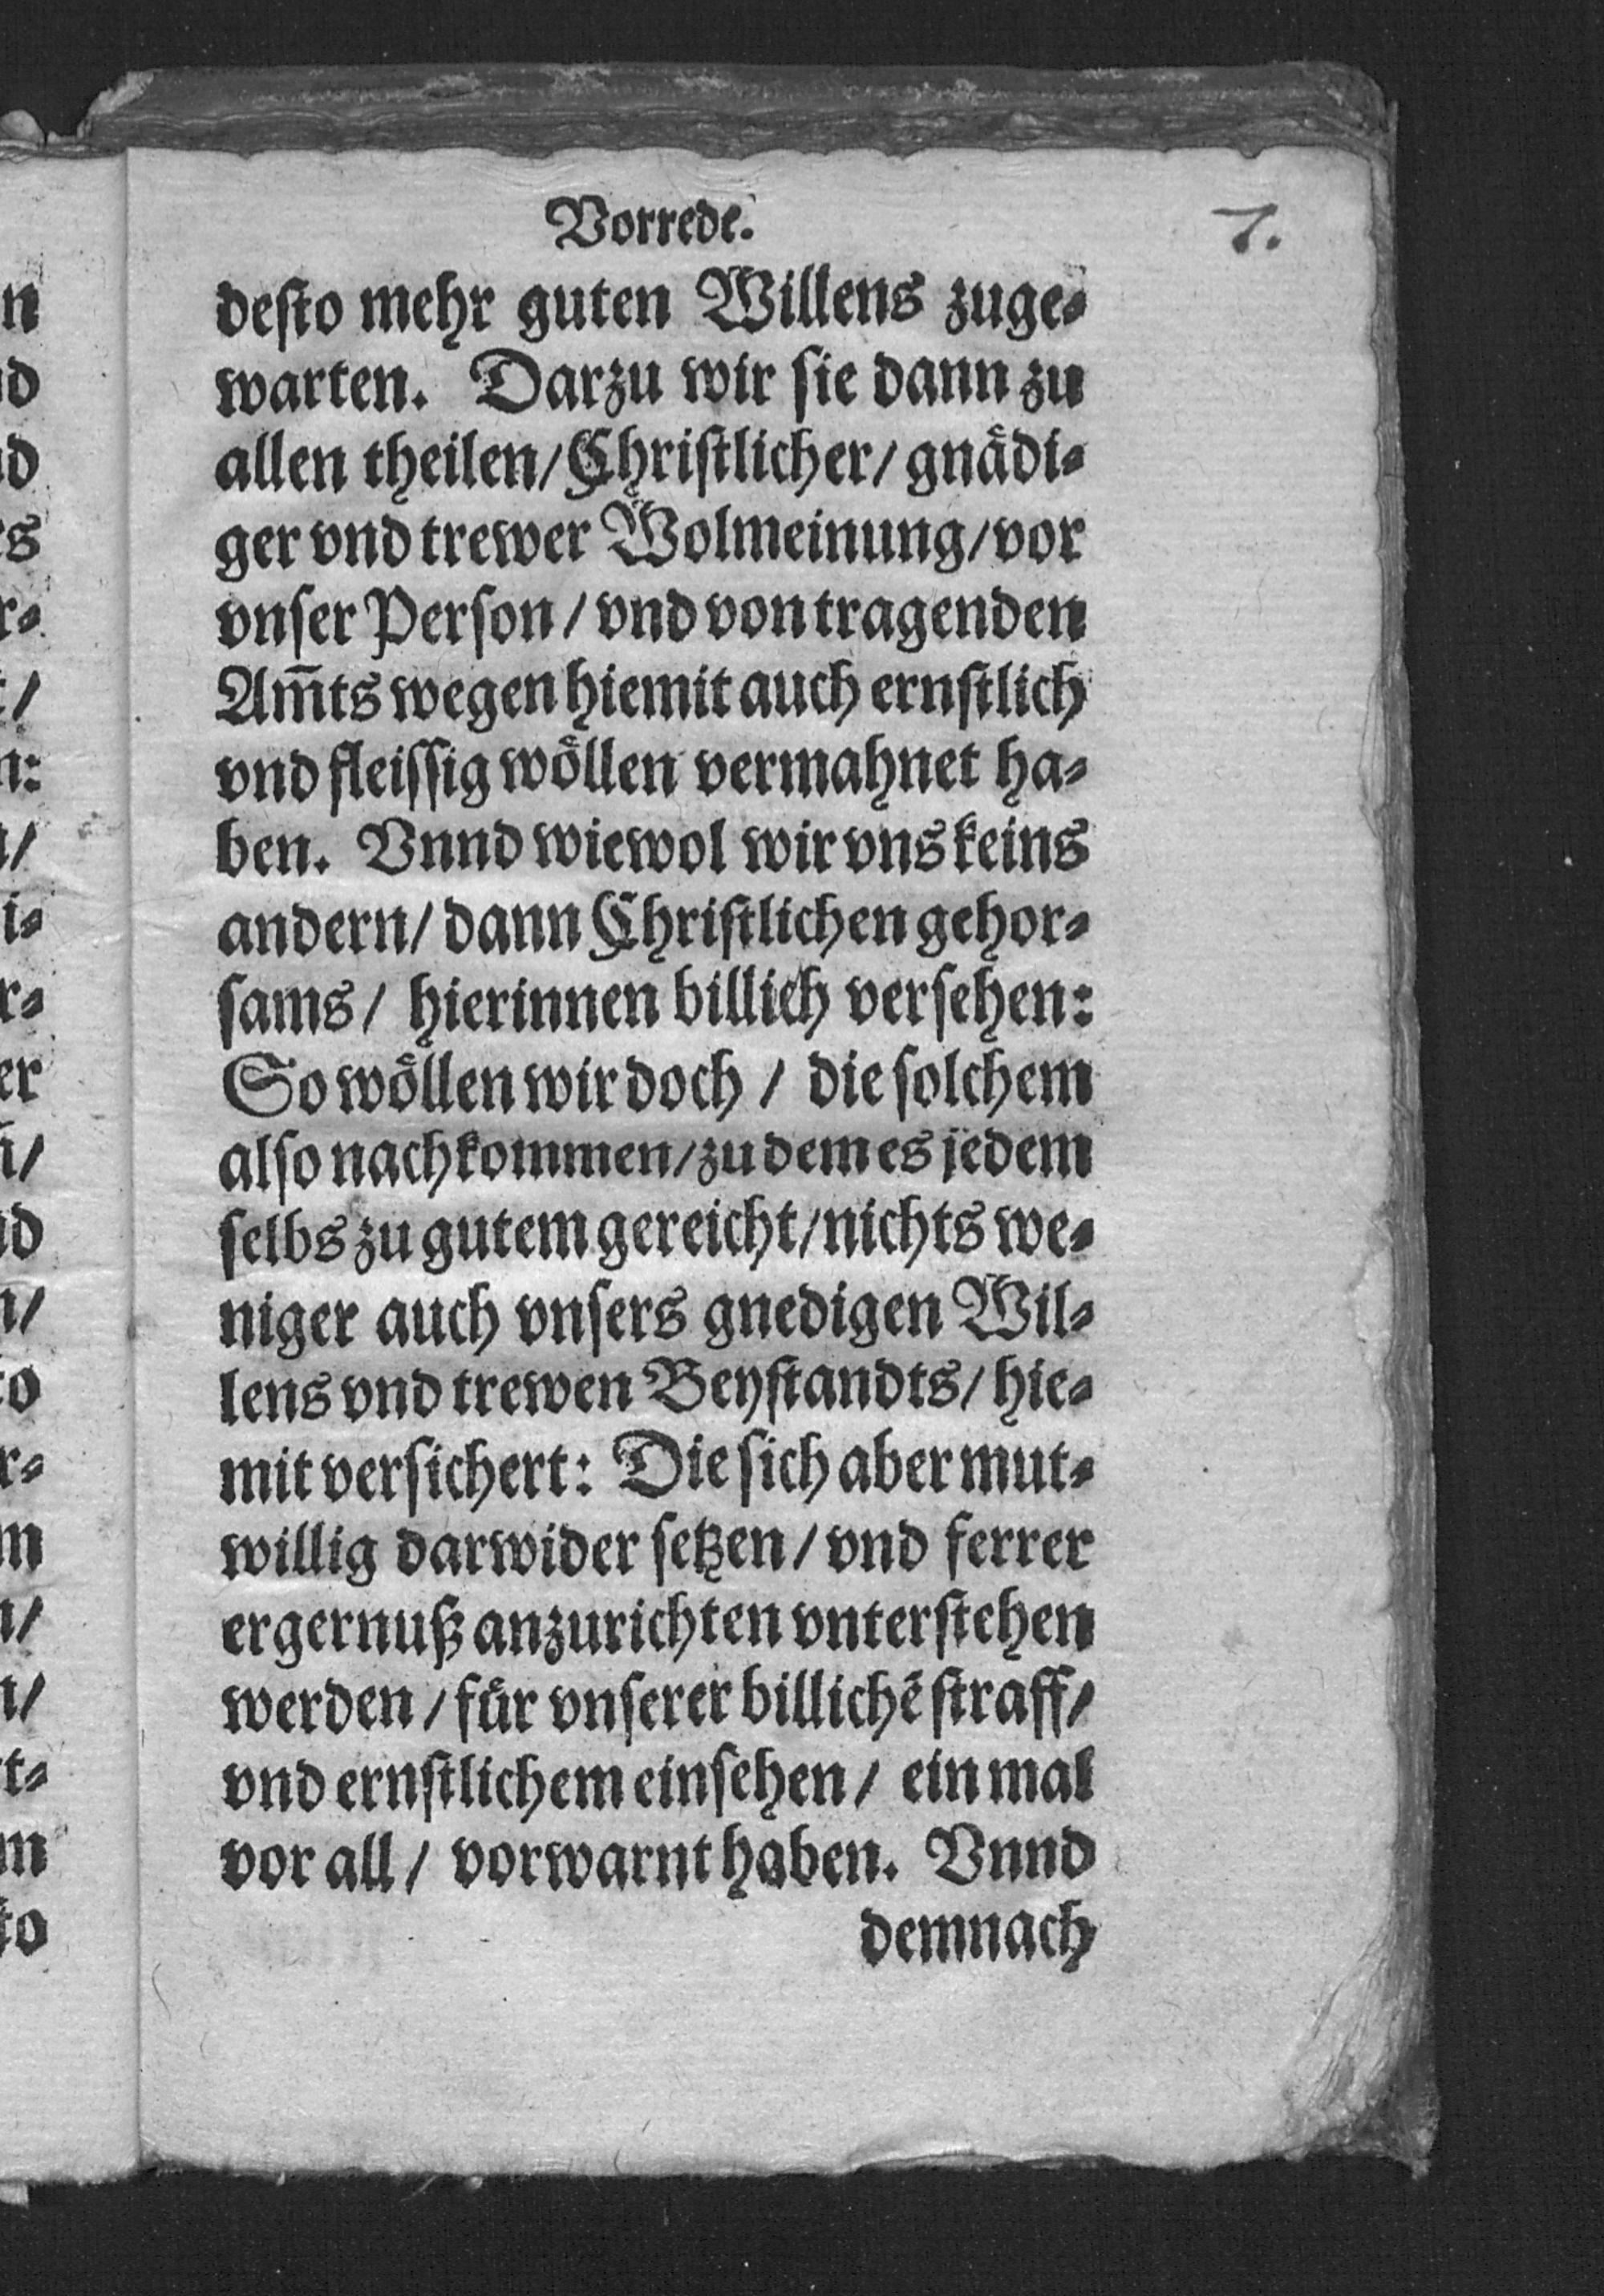 Vorrede.
7.
desto mehr guten Willens zuge⸗
warten. Darzu wir sie dann zu
allen theilen/Christlicher/gnaͤdi⸗
ger vnd trewer Wolmeinung/vor
vnser Person/vnd von tragenden
Am̄ts wegen hiemit auch ernstlich
vnd fleissig woͤllen vermahnet ha⸗
ben. Vnnd wiewol wir vns keins
andern/dann Christlichen gehor⸗
sams/ hierinnen billich versehen:
So woͤllen wir doch/ die solchem
also nachkommen/zu dem es jedem
selbs zu gutem gereicht/nichts we⸗
niger auch vnsers gnedigen Wil⸗
lens vnd trewen Beystandts/hie⸗
mit versichert: Die sich aber mut⸗
willig darwider setzen/vnd ferrer
ergernuß anzurichten vnterstehen
werden/fuͤr vnserer billichē straff/
vnd ernstlichem einsehen/ ein mal
vor all/ vorwarnt haben. Vnnd
demnach